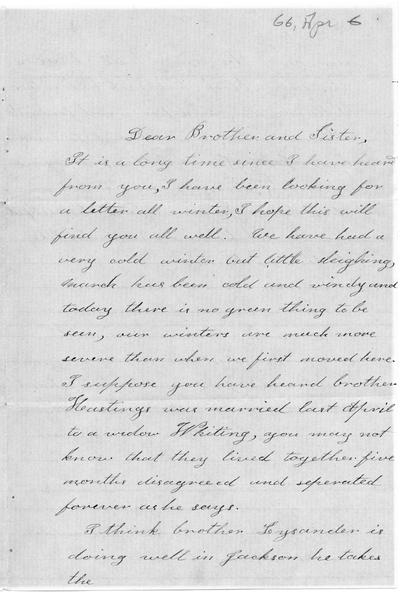 66, Apr 6
Dear Brother and Sister,
It is a long time since I have heard
from you, I have been looking for
a letter all winter, I hope this will
find you all well. We have had a
very cold winter but little sleighing,
march has been cold and windy and
today there is no green thing to be
seen, our winters are much more
severe than when we first moved here.
I suppose you have heard brother
Hastings was married last April
to a widow Whiting, you may not
know that they lived together five
months disagreed and seperated
forever as he says.
I think brother Lysander is
doing well in Jackson he takes
the